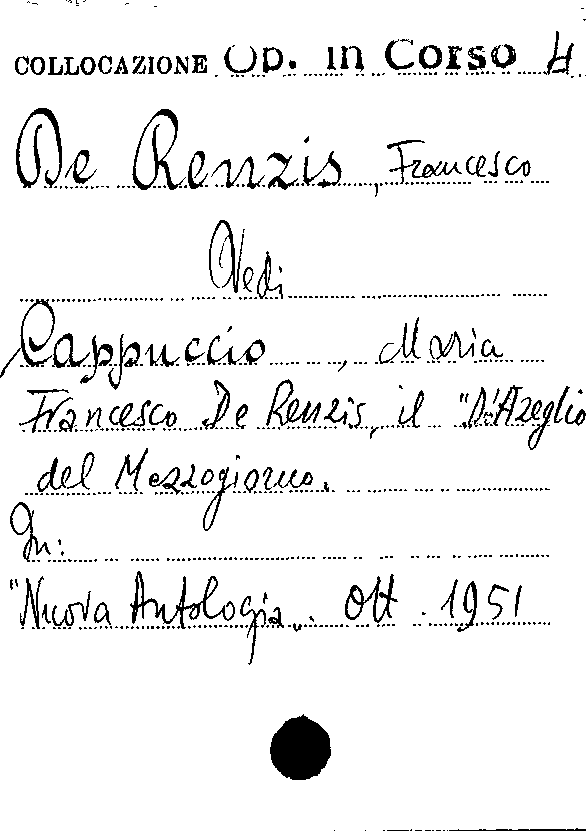 COLLOCAZIONE Op. in Corso 4
De Renzis, Francesco
Vedi
Cappuccio, Maria
Francesco De Renzis, il "D'Azeglio
del Mezzogiorno.
In:
"Nuova Antologia". Ott. 1951